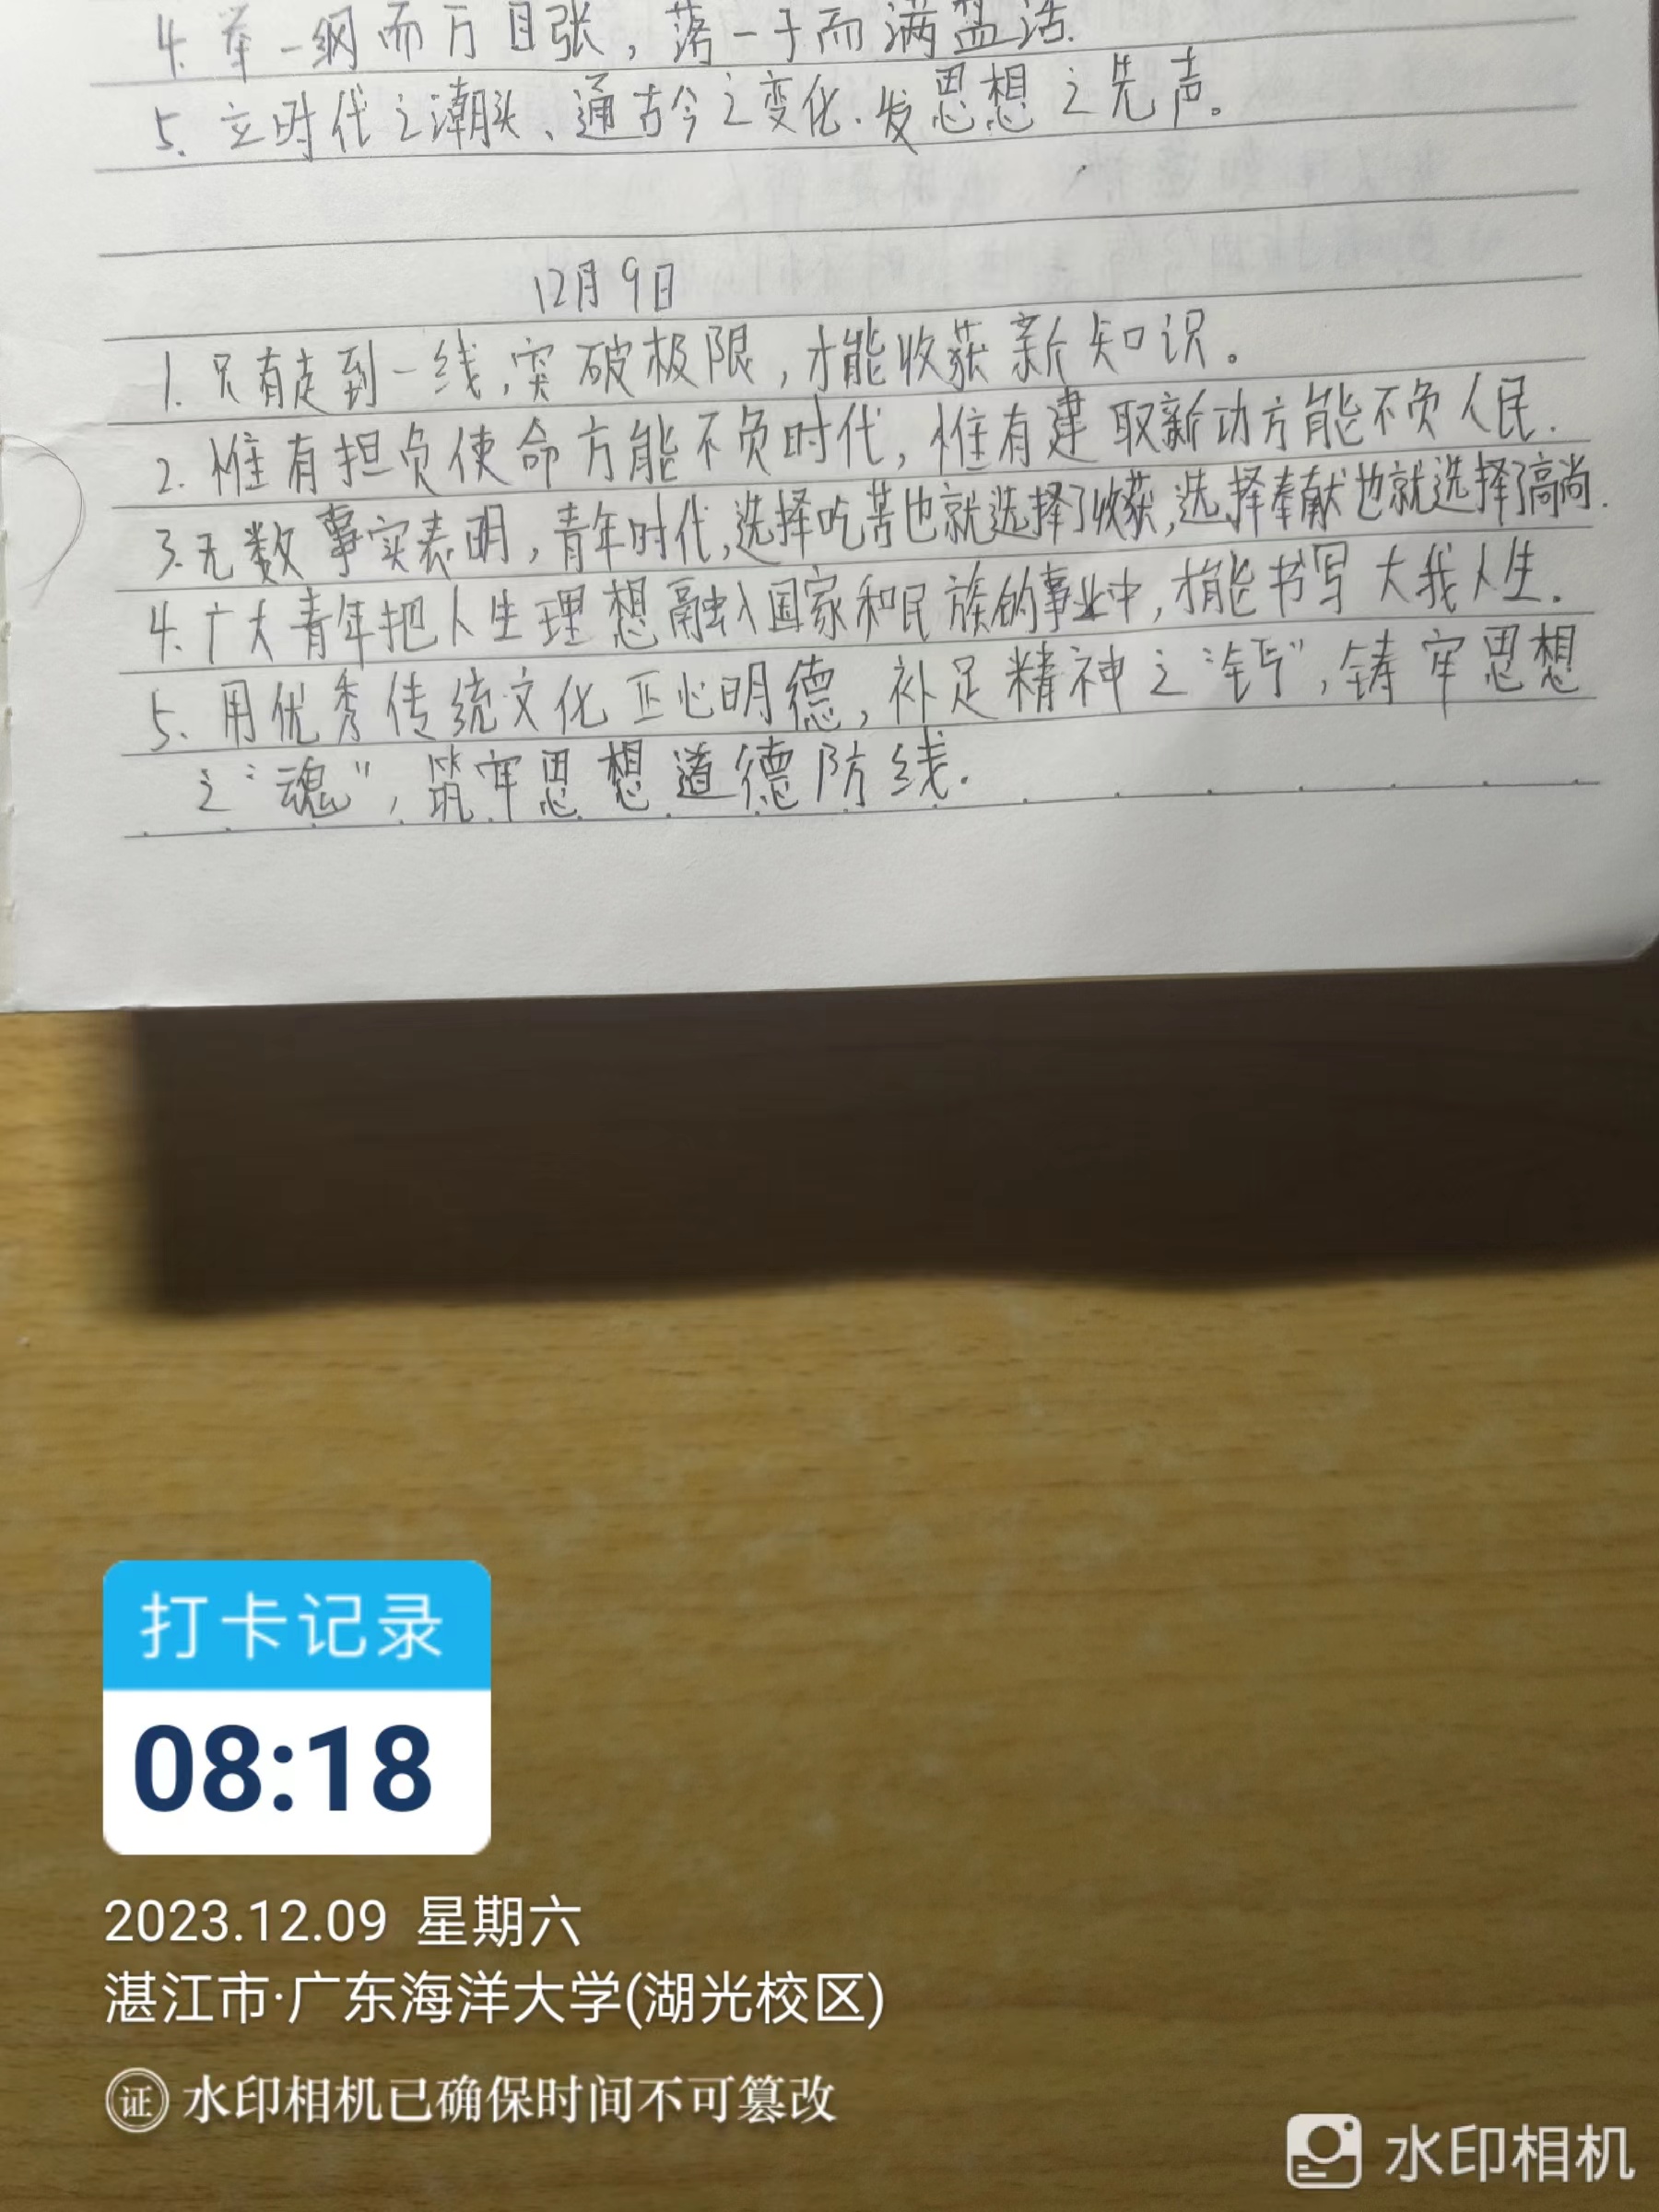 4. 举一纲而万目张，落一子而满盘活.
5. 立时代之潮头、通古今之变化.发思想之先声。
12月9日
1. 只有走到一线，突破极限，才能收获新知识。
2. 惟有担负使命方能不负时代，惟有建取新功方能不负人民.
3. 无数事实表明，青年时代，选择吃苦也就选择了收获，选择奉献也就选择了高尚.
4. 广大青年把人生理想融入国家和民族的事业中，才能书写大我人生.
5. 用优秀传统文化正心明德，补足精神之“钙”，铸牢思想
之“魂”，筑牢思想道德防线.
打卡记录
08:18
2023.12.09 星期六
湛江市·广东海洋大学(湖光校区)
证 水印相机已确保时间不可篡改
水印相机